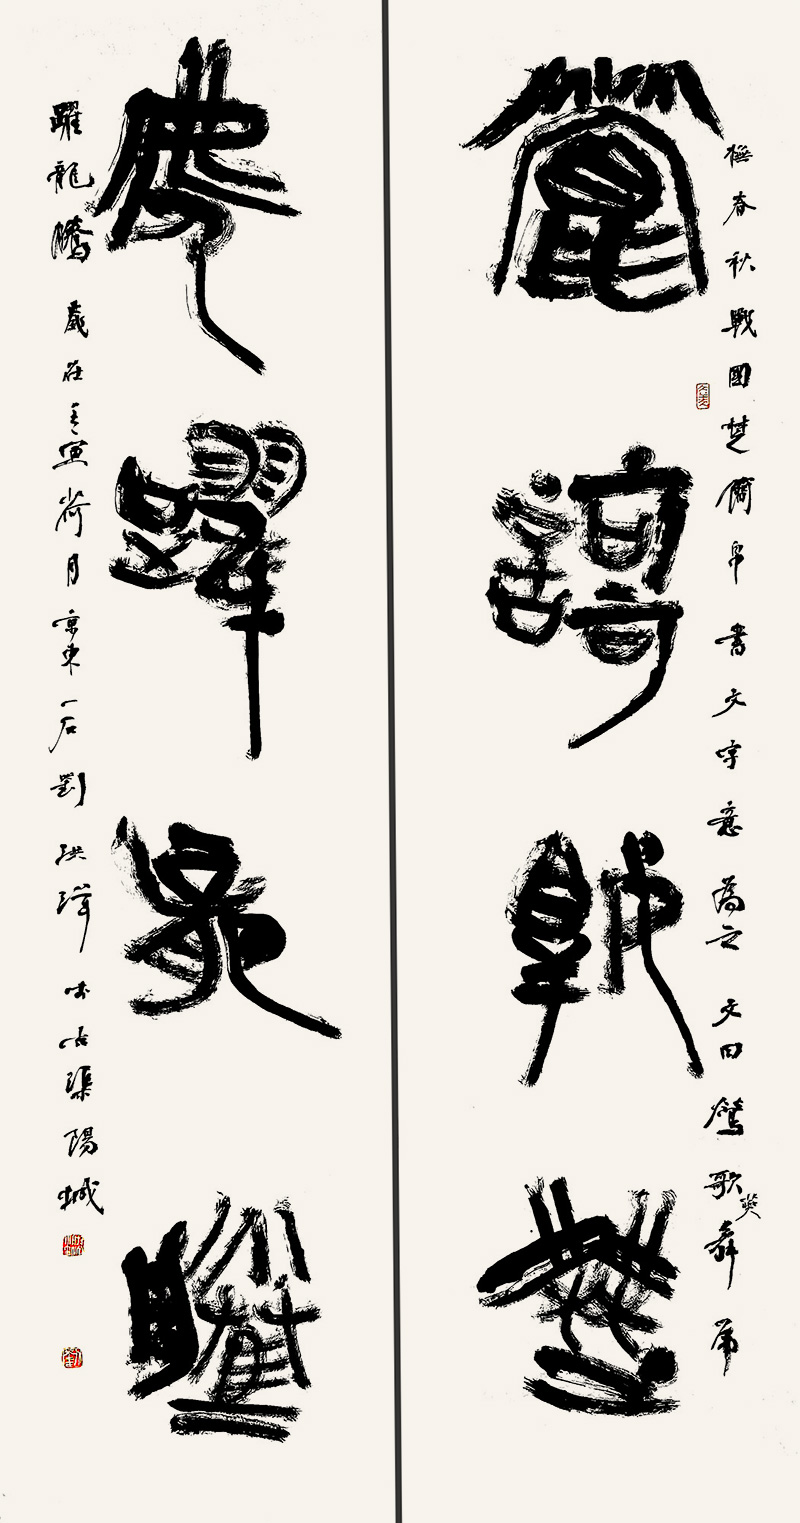 橅春秋戰國楚簡帛書文字意為之 文曰鶯歌燕舞虎
鶯謌燕舞
虎躍龍騰
躍龍騰 歲在壬寅荷月京東一石劉洪 味古渠陽城